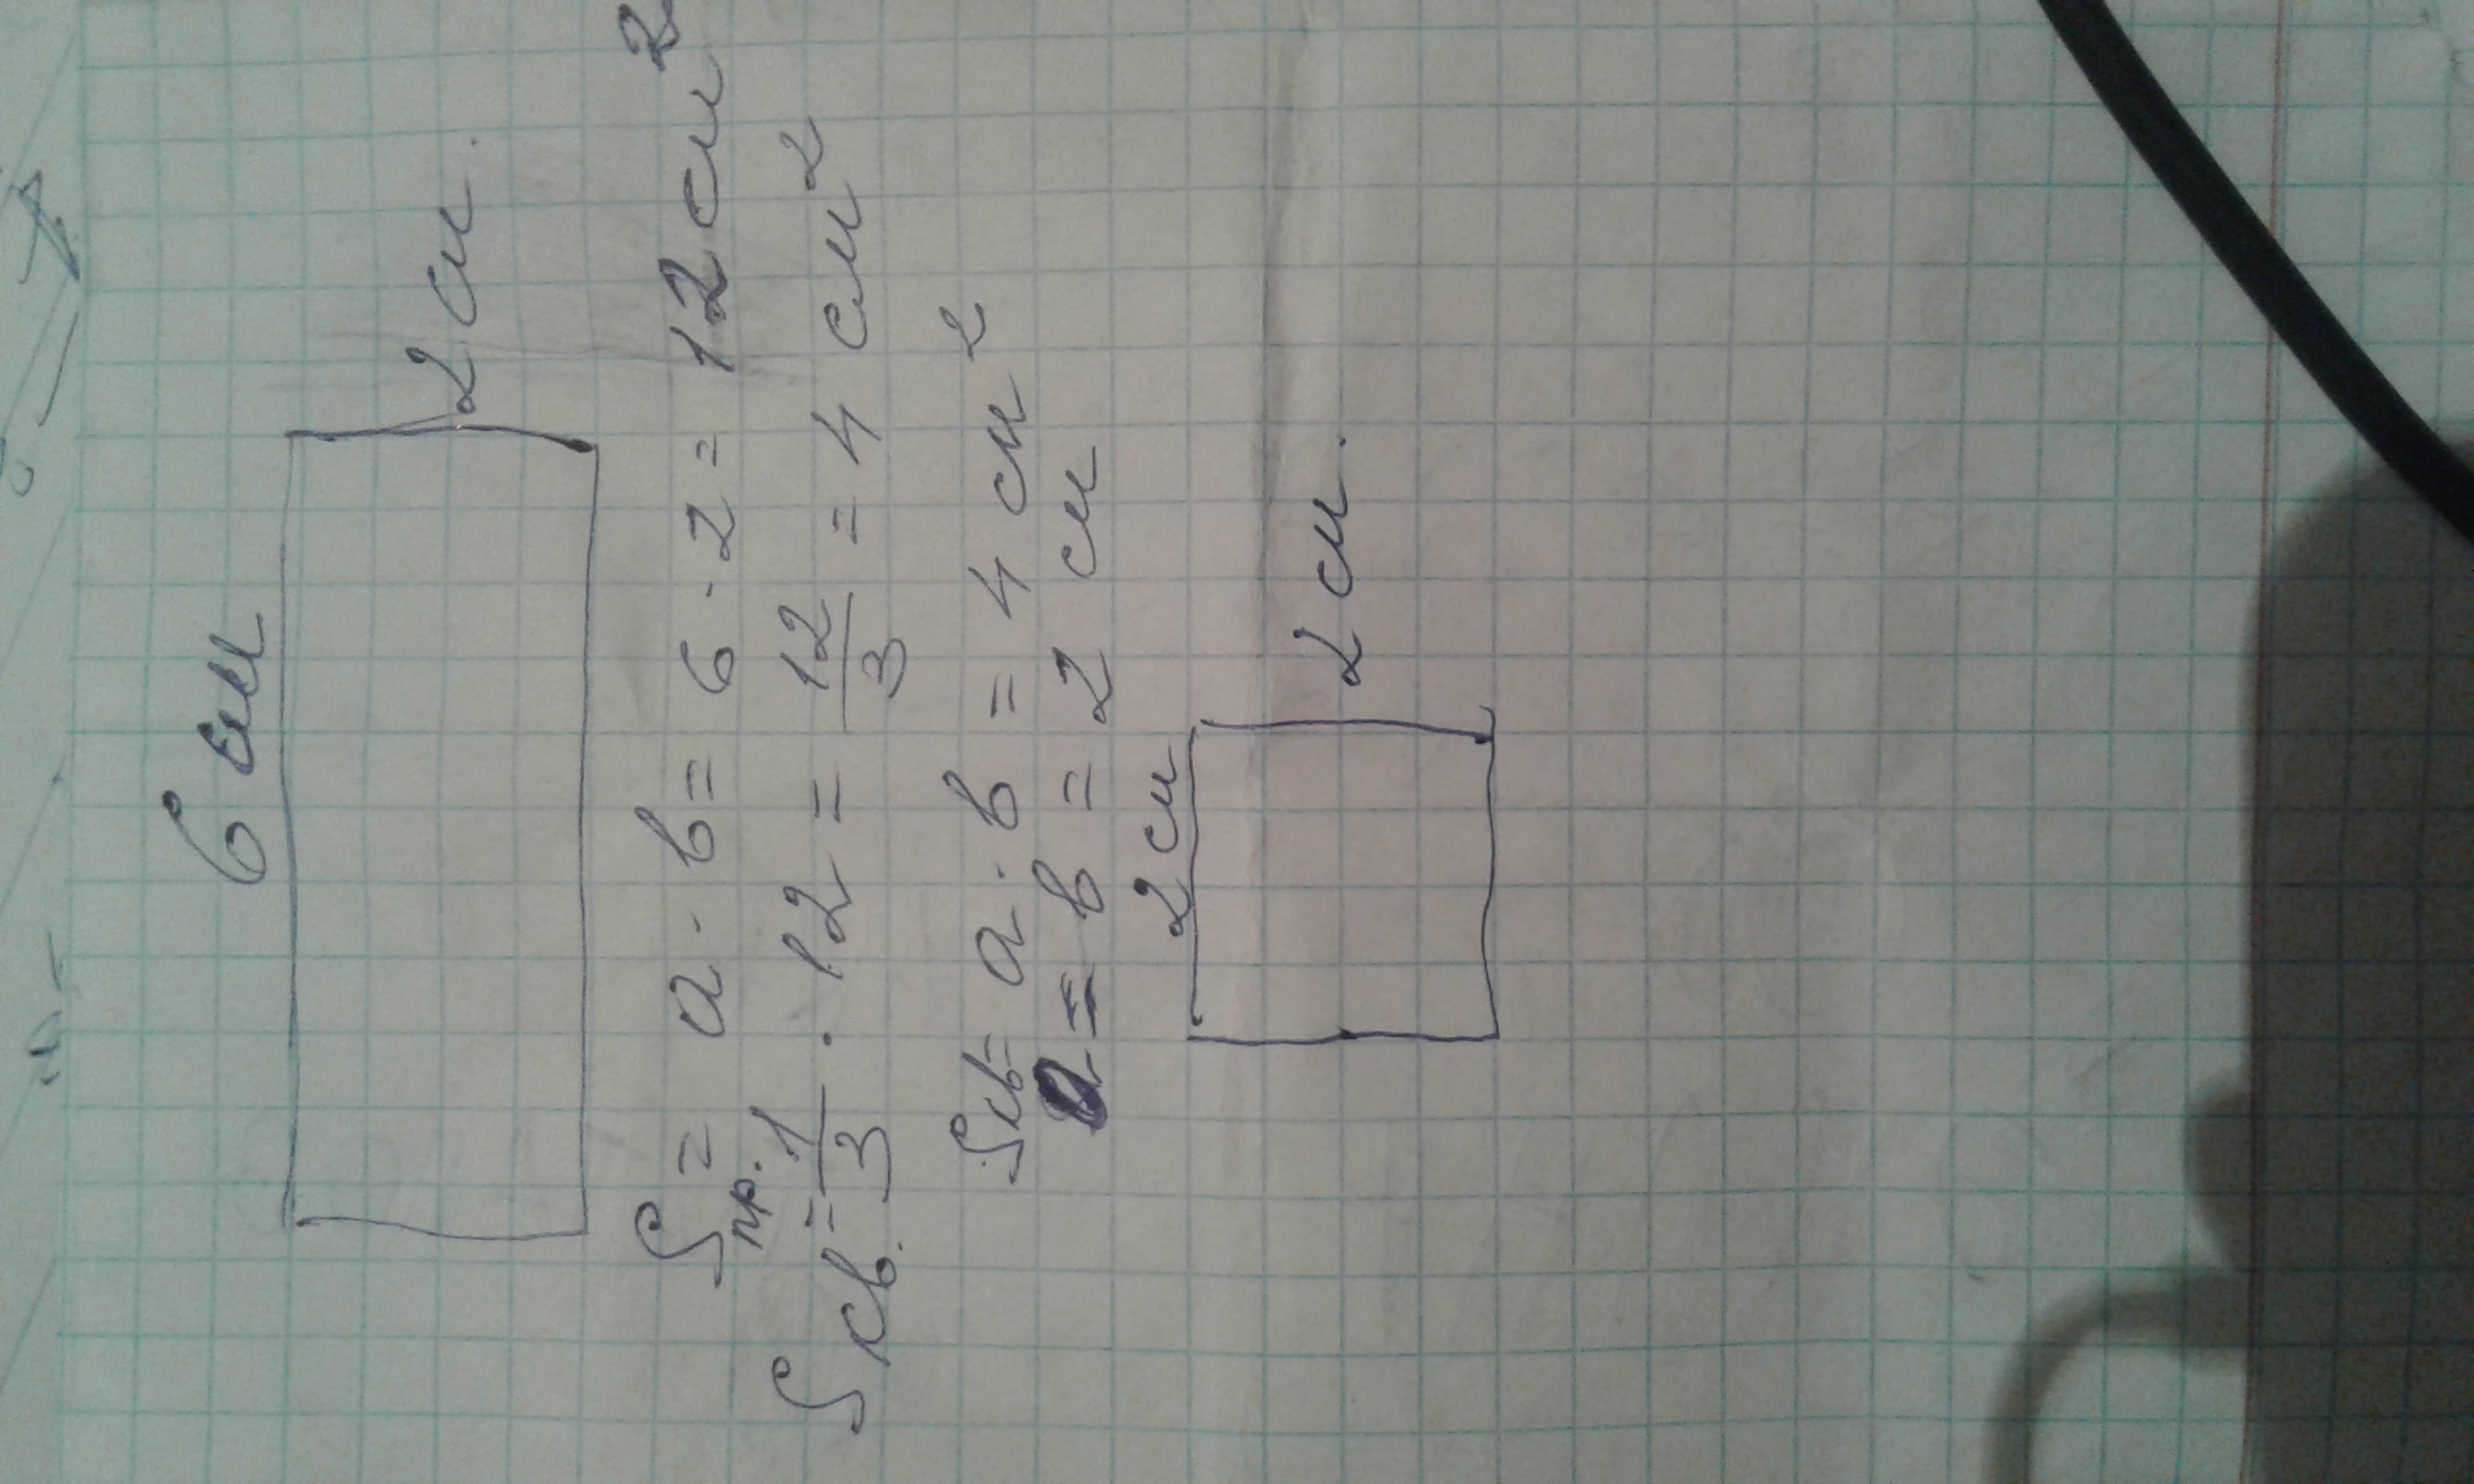 6 см
2 см.
Sпр. = a · b = 6 · 2 = 12 см²
Sкв. = 1/3 · 12 = 12/3 = 4 см²
Sкв = a · b = 4 см²
a = b = 2 см
2 см
2 см.